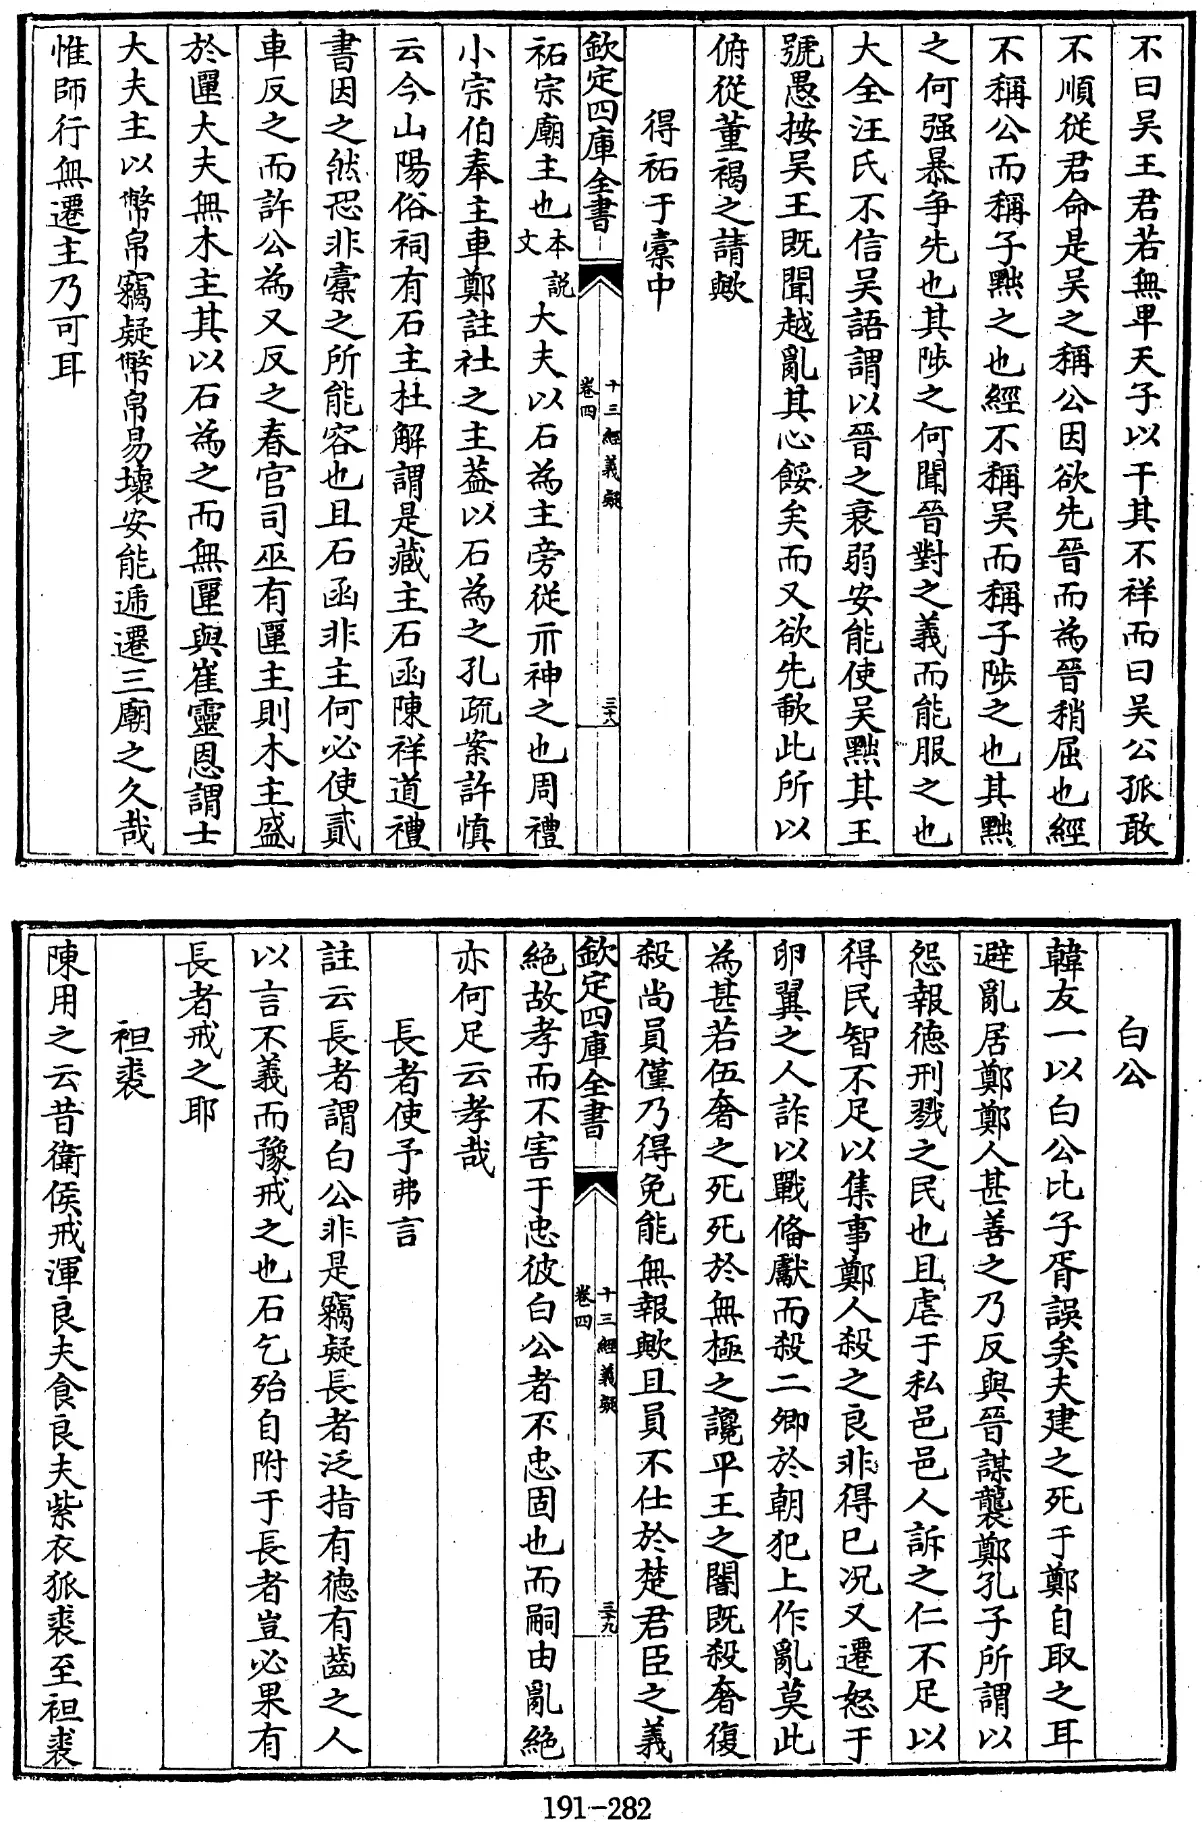 不曰吴王君若無卑天子以干其不祥而曰吴公孤敢
不順從君命是吴之稱公因欲先晉而為晉稍屈也經
不稱公而稱子黜之也經不稱吴而稱子陟之也其黜
之何强暴争先也其陟之何聞晉對之義而能服之也
大全汪氏不信吴語謂以晉之衰弱安能使吴黜其王
號愚按吴王既聞越亂其心餒矣而又欲先歃此所以
俯從董褐之請歟
得祏于橐中
欽定四庫全書
十三經義疑
卷四
三十八
祏宗廟主也本說文大夫以石為主旁從示神之也周禮
小宗伯奉主車鄭註社之主葢以石為之孔疏案許慎
云今山陽俗祠有石主杜解謂是藏主石函陳祥道禮
書因之然恐非橐之所能容也且石函非主何必使貳
車反之而許公為又反之春官司巫有匰主則木主盛
於匰大夫無木主其以石為之而無匰與崔靈恩謂士
大夫主以幣帛竊疑幣帛易壊安能遞遷三廟之久哉
惟師行無遷主乃可耳
白公
韓友一以白公比子胥誤矣夫建之死于鄭自取之耳
避亂居鄭鄭人甚善之乃反與晉謀襲鄭孔子所謂以
怨報德刑戮之民也且虐于私邑邑人訴之仁不足以
得民智不足以集事鄭人殺之良非得已况又遷怒于
卵翼之人詐以戰備獻而殺二卿於朝犯上作亂莫此
為甚若伍奢之死死於無極之讒平王之闇既殺奢復
殺尚員僅乃得免能無報歟且員不仕於楚君臣之義
欽定四庫全書
十三經義疑
卷四
三十九
絶故孝而不害于忠彼白公者不忠固也而嗣由亂絶
亦何足云孝哉
長者使予弗言
註云長者謂白公非是竊疑長者泛指有德有齒之人
以言不義而豫戒之也石乞殆自附于長者豈必果有
長者戒之耶
袒裘
陳用之云昔衛侯戒渾良夫食良夫紫衣狐裘至袒裘
191-282